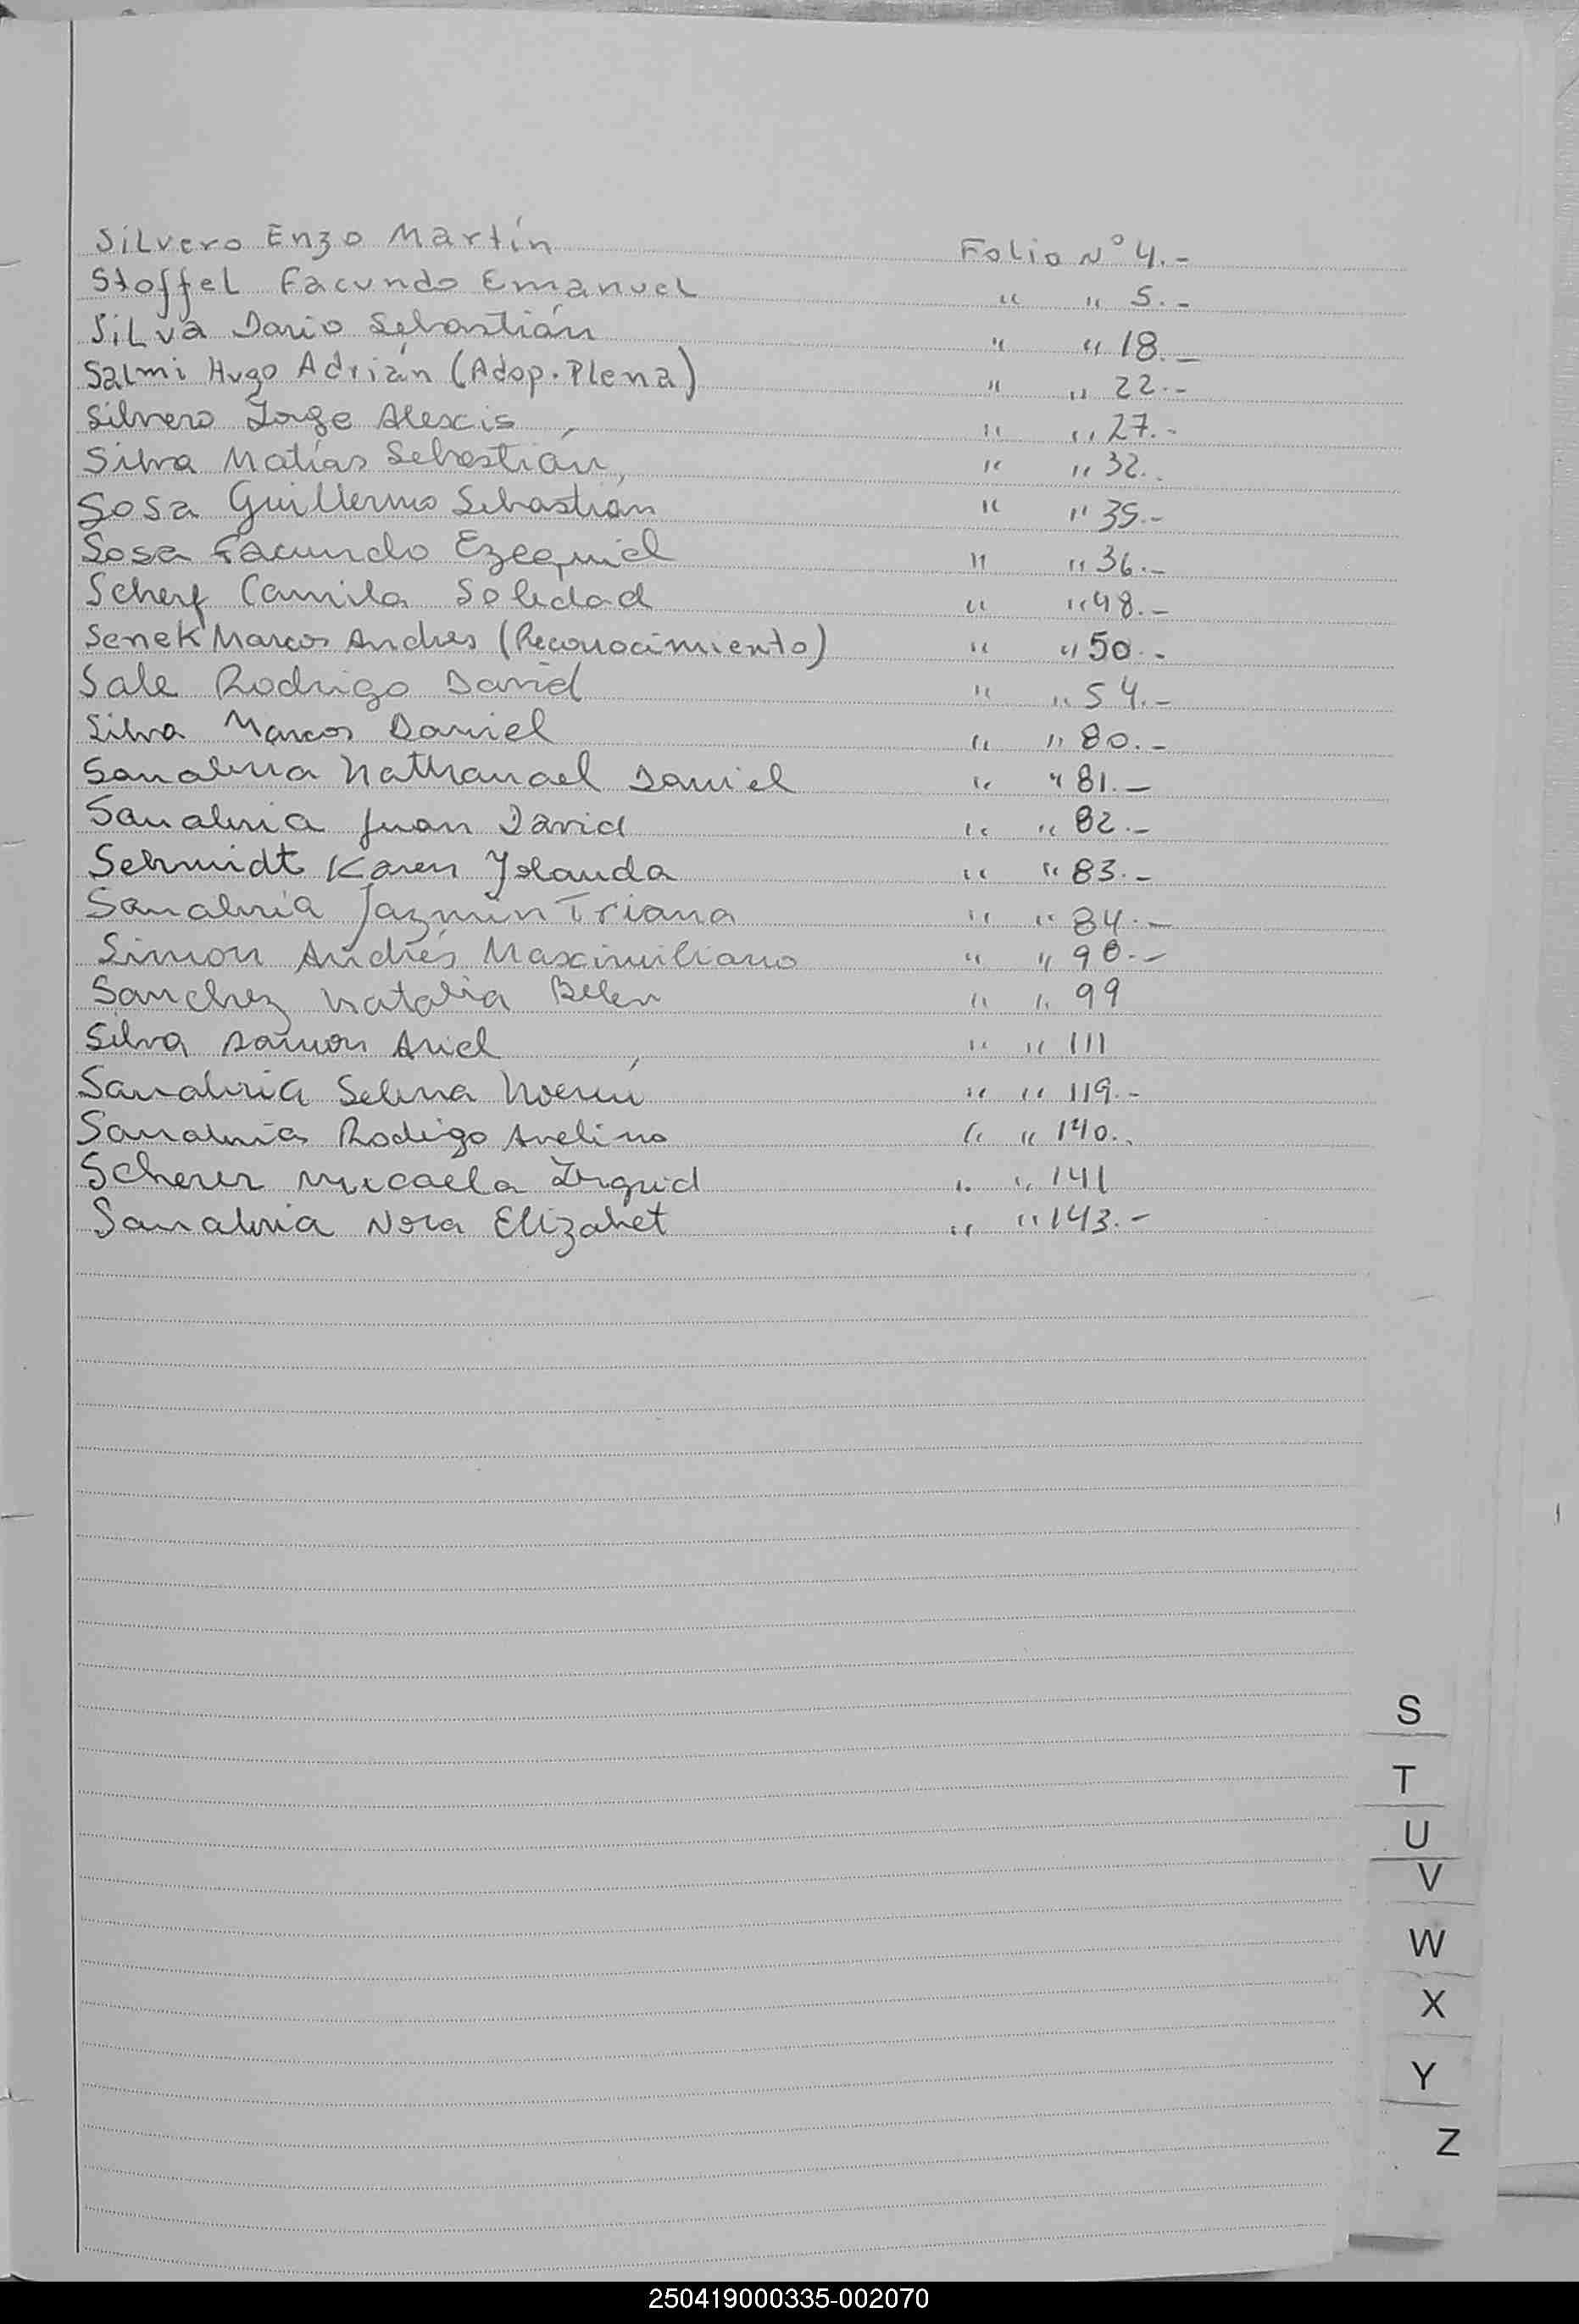 Silvero Enzo Martín Folio Nº 4.-
Stoffel Facundo Emanuel " " 5.-
Silva Dario Sebastián " " 18.-
Salmi Hugo Adrián (Adop. Plena) " " 22.-
Silvero Jorge Alexis " " 27.-
Silva Matías Sebastián " " 32.-
Sosa Guillermo Sebastián " " 35.-
Sosa Facundo Ezequiel " " 36.-
Scherf Camila Soledad " " 48.-
Senek Marcos Andres (Reconocimiento) " " 50.-
Sale Rodrigo David " " 54.-
Silva Marcos Daniel " " 80.-
Sanabria Nathanael Daniel " " 81.-
Sanabria Juan David " " 82.-
Schmidt Karen Yolanda " " 83.-
Sanabria Jazmin Triana " " 84.-
Simon Andrés Maximiliano " " 90.-
Sanchez Natalia Belen " " 99
Silva Ramon Ariel " " 111
Sanabria Selena Noemí " " 119.-
Sanabria Rodrigo Avelino " " 140.-
Scherer Micaela Ingrid " " 141
Sanabria Nora Elizabet " " 143.-
S
T
U
V
W
X
Y
Z
250419000335-002070